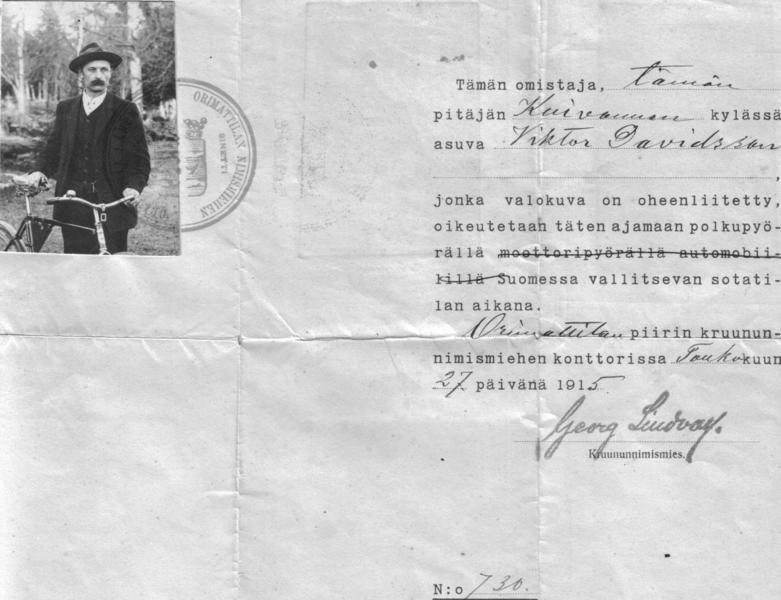 ORIMATTILAN KIHLAKUNNAN
SINETTI
Tämän omistaja, tämän
pitäjän Kuivannon kylässä
asuva Viktor Davidsson
,
jonka valokuva on oheenliitetty,
oikeutetaan täten ajamaan polkupyö-
rällä moottoripyörällä automobii-
killä Suomessa vallitsevan sotati-
lan aikana.
Orimattilan piirin kruunun-
nimismiehen konttorissa Toukokuun
27 päivänä 1915
Georg Lindvall.
Kruununnimismies.
N:o 730.